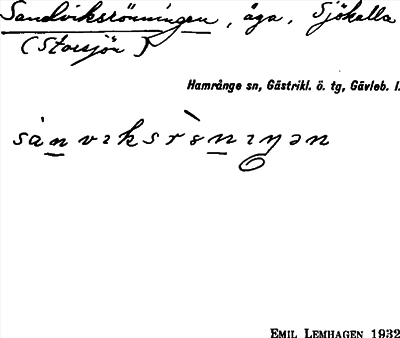 Sandviksrönningen, äga, Sjökalla
(Storsjön)
Hamrånge sn, Gästrikl. ö. tg, Gävleb. l.
sànvıksrònıŋən
EMIL LEMHAGEN 1932